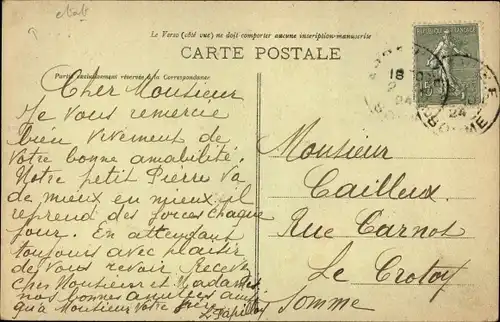 Le Verso (côté vue) ne doit comporter aucune inscription-manuscrite
CARTE POSTALE
Partie exclusivement réservée à la Correspondance
RÉPUBLIQUE FRANÇAISE
15
18
24
24
SOMME
Cher Monsieur
Je vous remercie
bien vivement de
votre bonne amabilité.
Notre petit Pierre va
de mieux en mieux il
reprend des forces chaque
jour. En attendant
toujours avec plaisir
de vous revoir. Recevez
cher Monsieur et Madame
nos bonnes amitiés ainsi
qu'à Monsieur votre frère
Monsieur
Cailleux
Rue Carnot
Le Crotoy
Somme